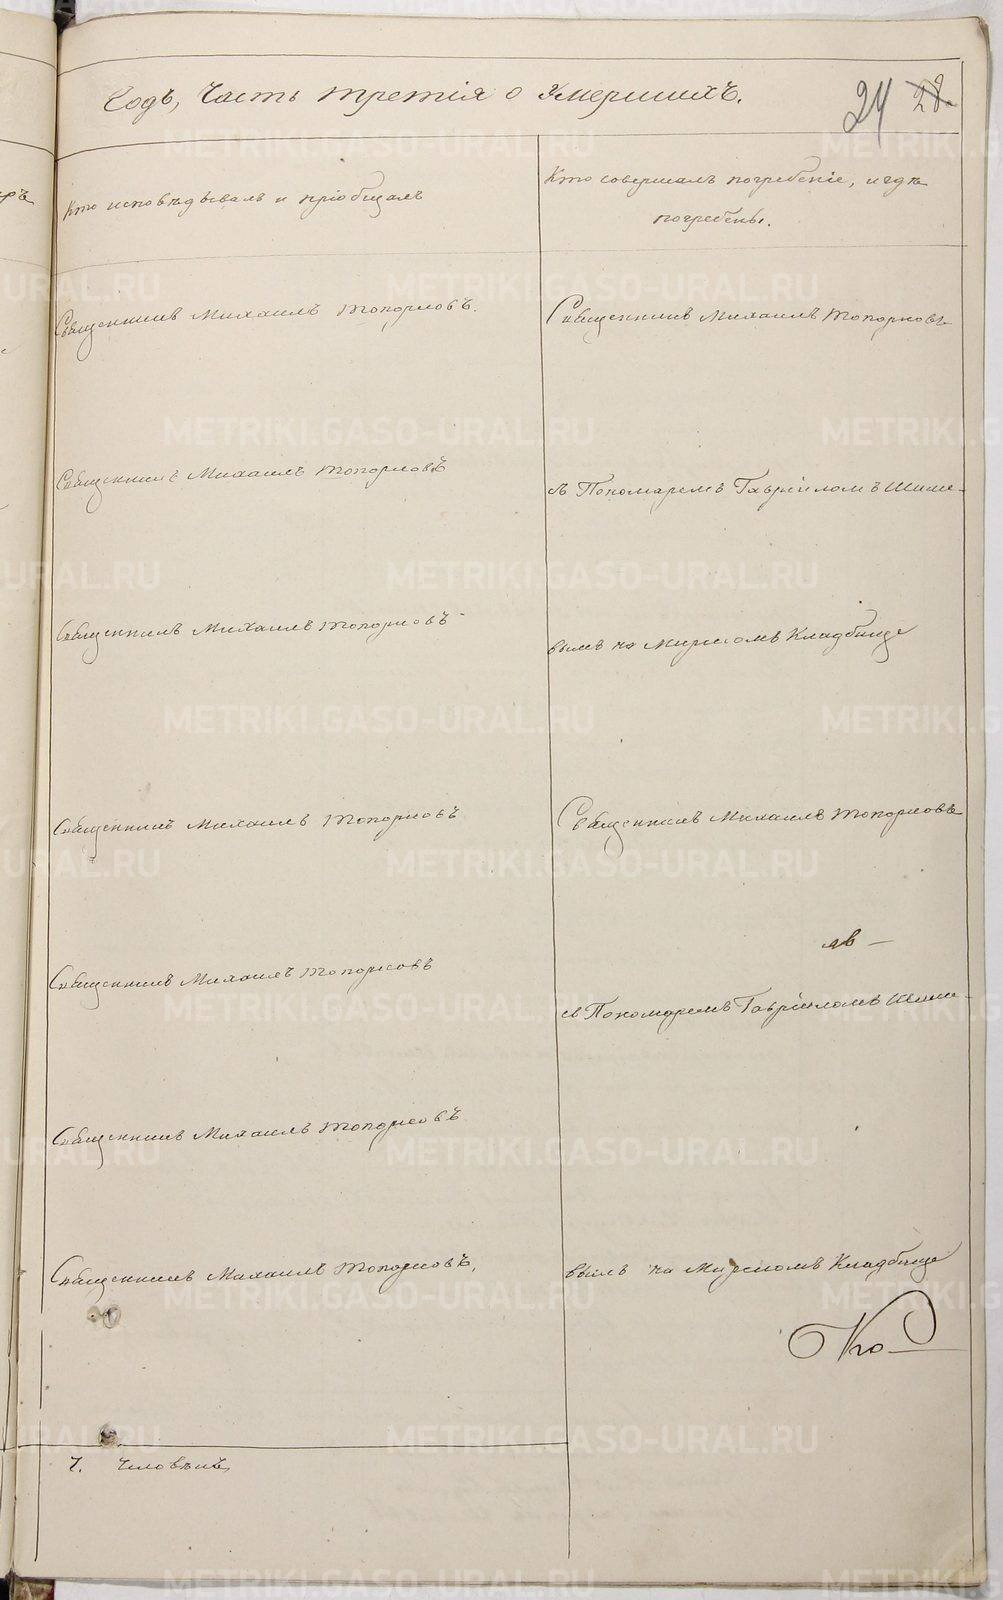 Годъ, Часть третія о Умершихъ.
24 28.
Кто исповѣдывалъ и пріобщалъ
Кто совершалъ погребеніе, и гдѣ
погребены.
Священникъ Михаилъ Топорковъ.
Священникъ Михаилъ Топорковъ
Священникъ Михаилъ Топорковъ
Священникъ Михаилъ Топорковъ
Священникъ Михаилъ Топорковъ
Священникъ Михаилъ Топорковъ
Священникъ Михаилъ Топорковъ,
7. Человѣкъ
Священникъ Михаилъ Топорковъ
съ Пономаремъ Гавріиломъ Шише-
вымъ на Мирскомъ Кладбище
Священникъ Михаилъ Топорковъ
съ Пономаремъ Гавріиломъ Шише-
вымъ на Мирскомъ Кладбище
METRIKI.GASO-URAL.RU